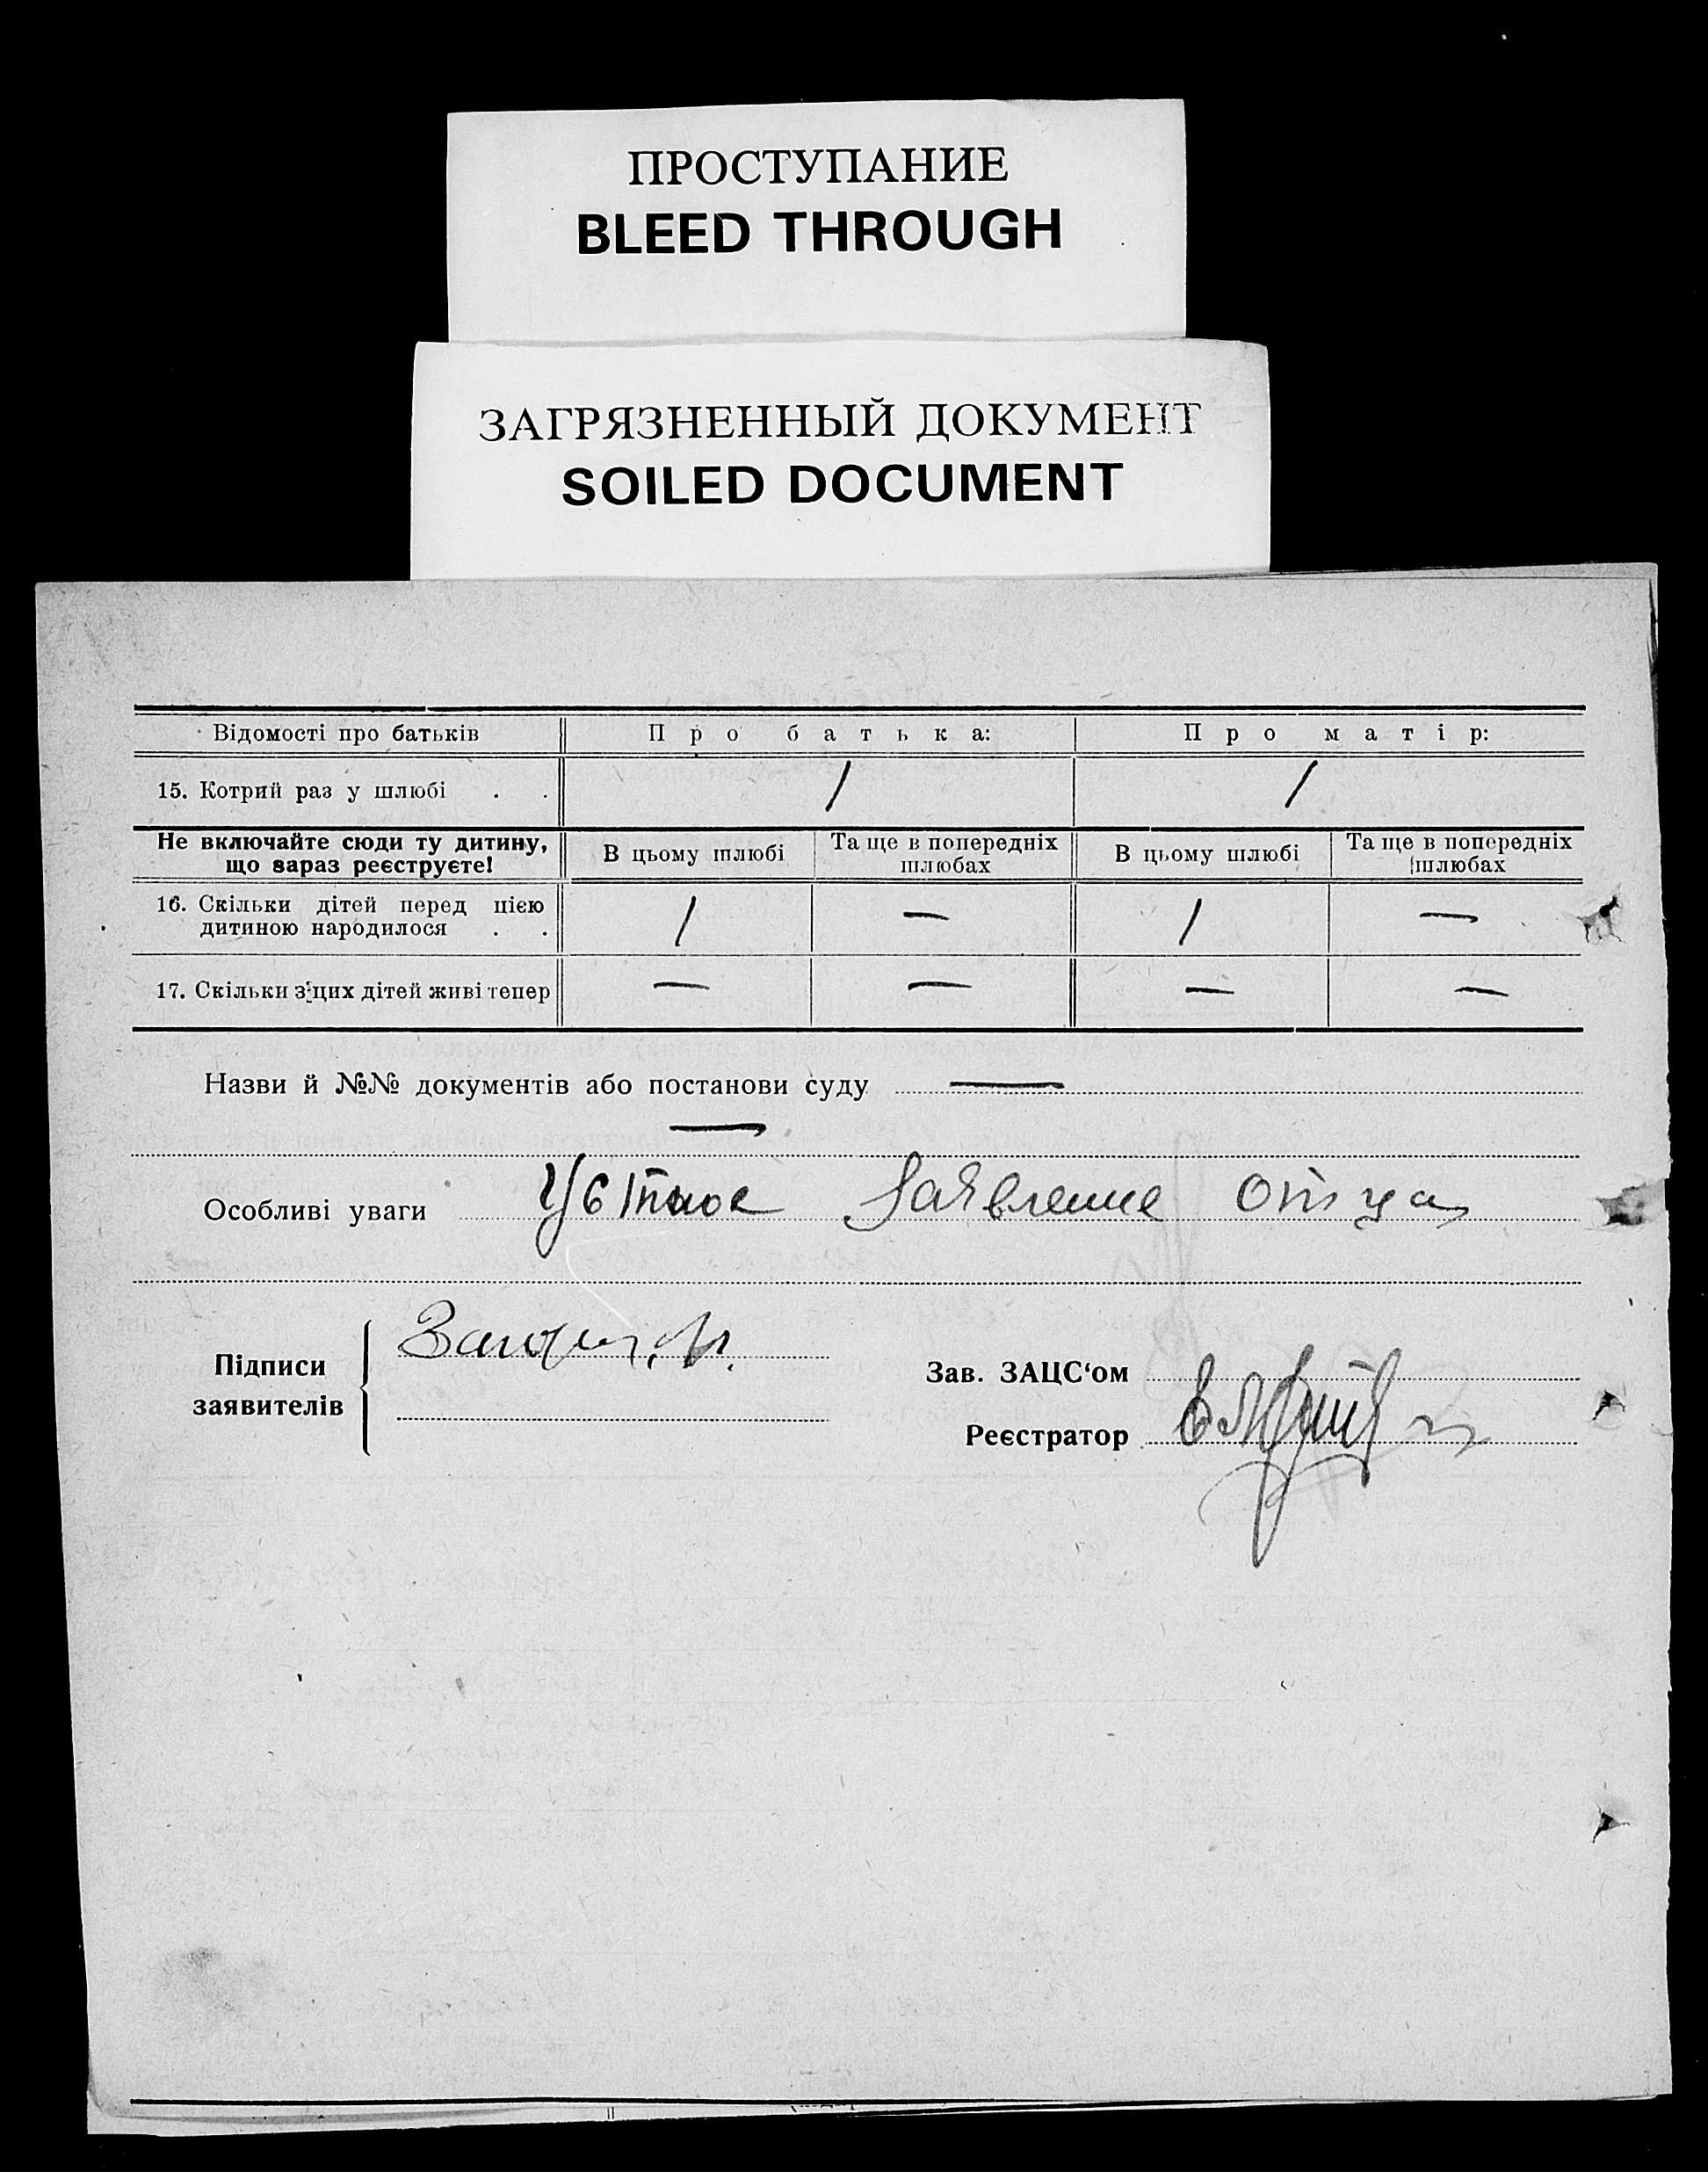 ПРОСТУПАНИЕ
BLEED THROUGH
ЗАГРЯЗНЕННЫЙ ДОКУМЕНТ
SOILED DOCUMENT
Відомості про батьків Про батька: Про матір:
15. Котрий раз у шлюбі . . 1 1
Не включайте сюди ту дитину, що зараз реєструєте! В цьому шлюбі Та ще в попередніх шлюбах В цьому шлюбі Та ще в попередніх шлюбах
16. Скільки дітей перед цією
дитиною народилося . . 1 — 1 —
17. Скільки з цих дітей живі тепер — — — —
Назви й №№ документів або постанови суду —
—
Особливі уваги Устное Заявление отца
Підписи
заявителів
Зав. ЗАЦС'ом
Реєстратор